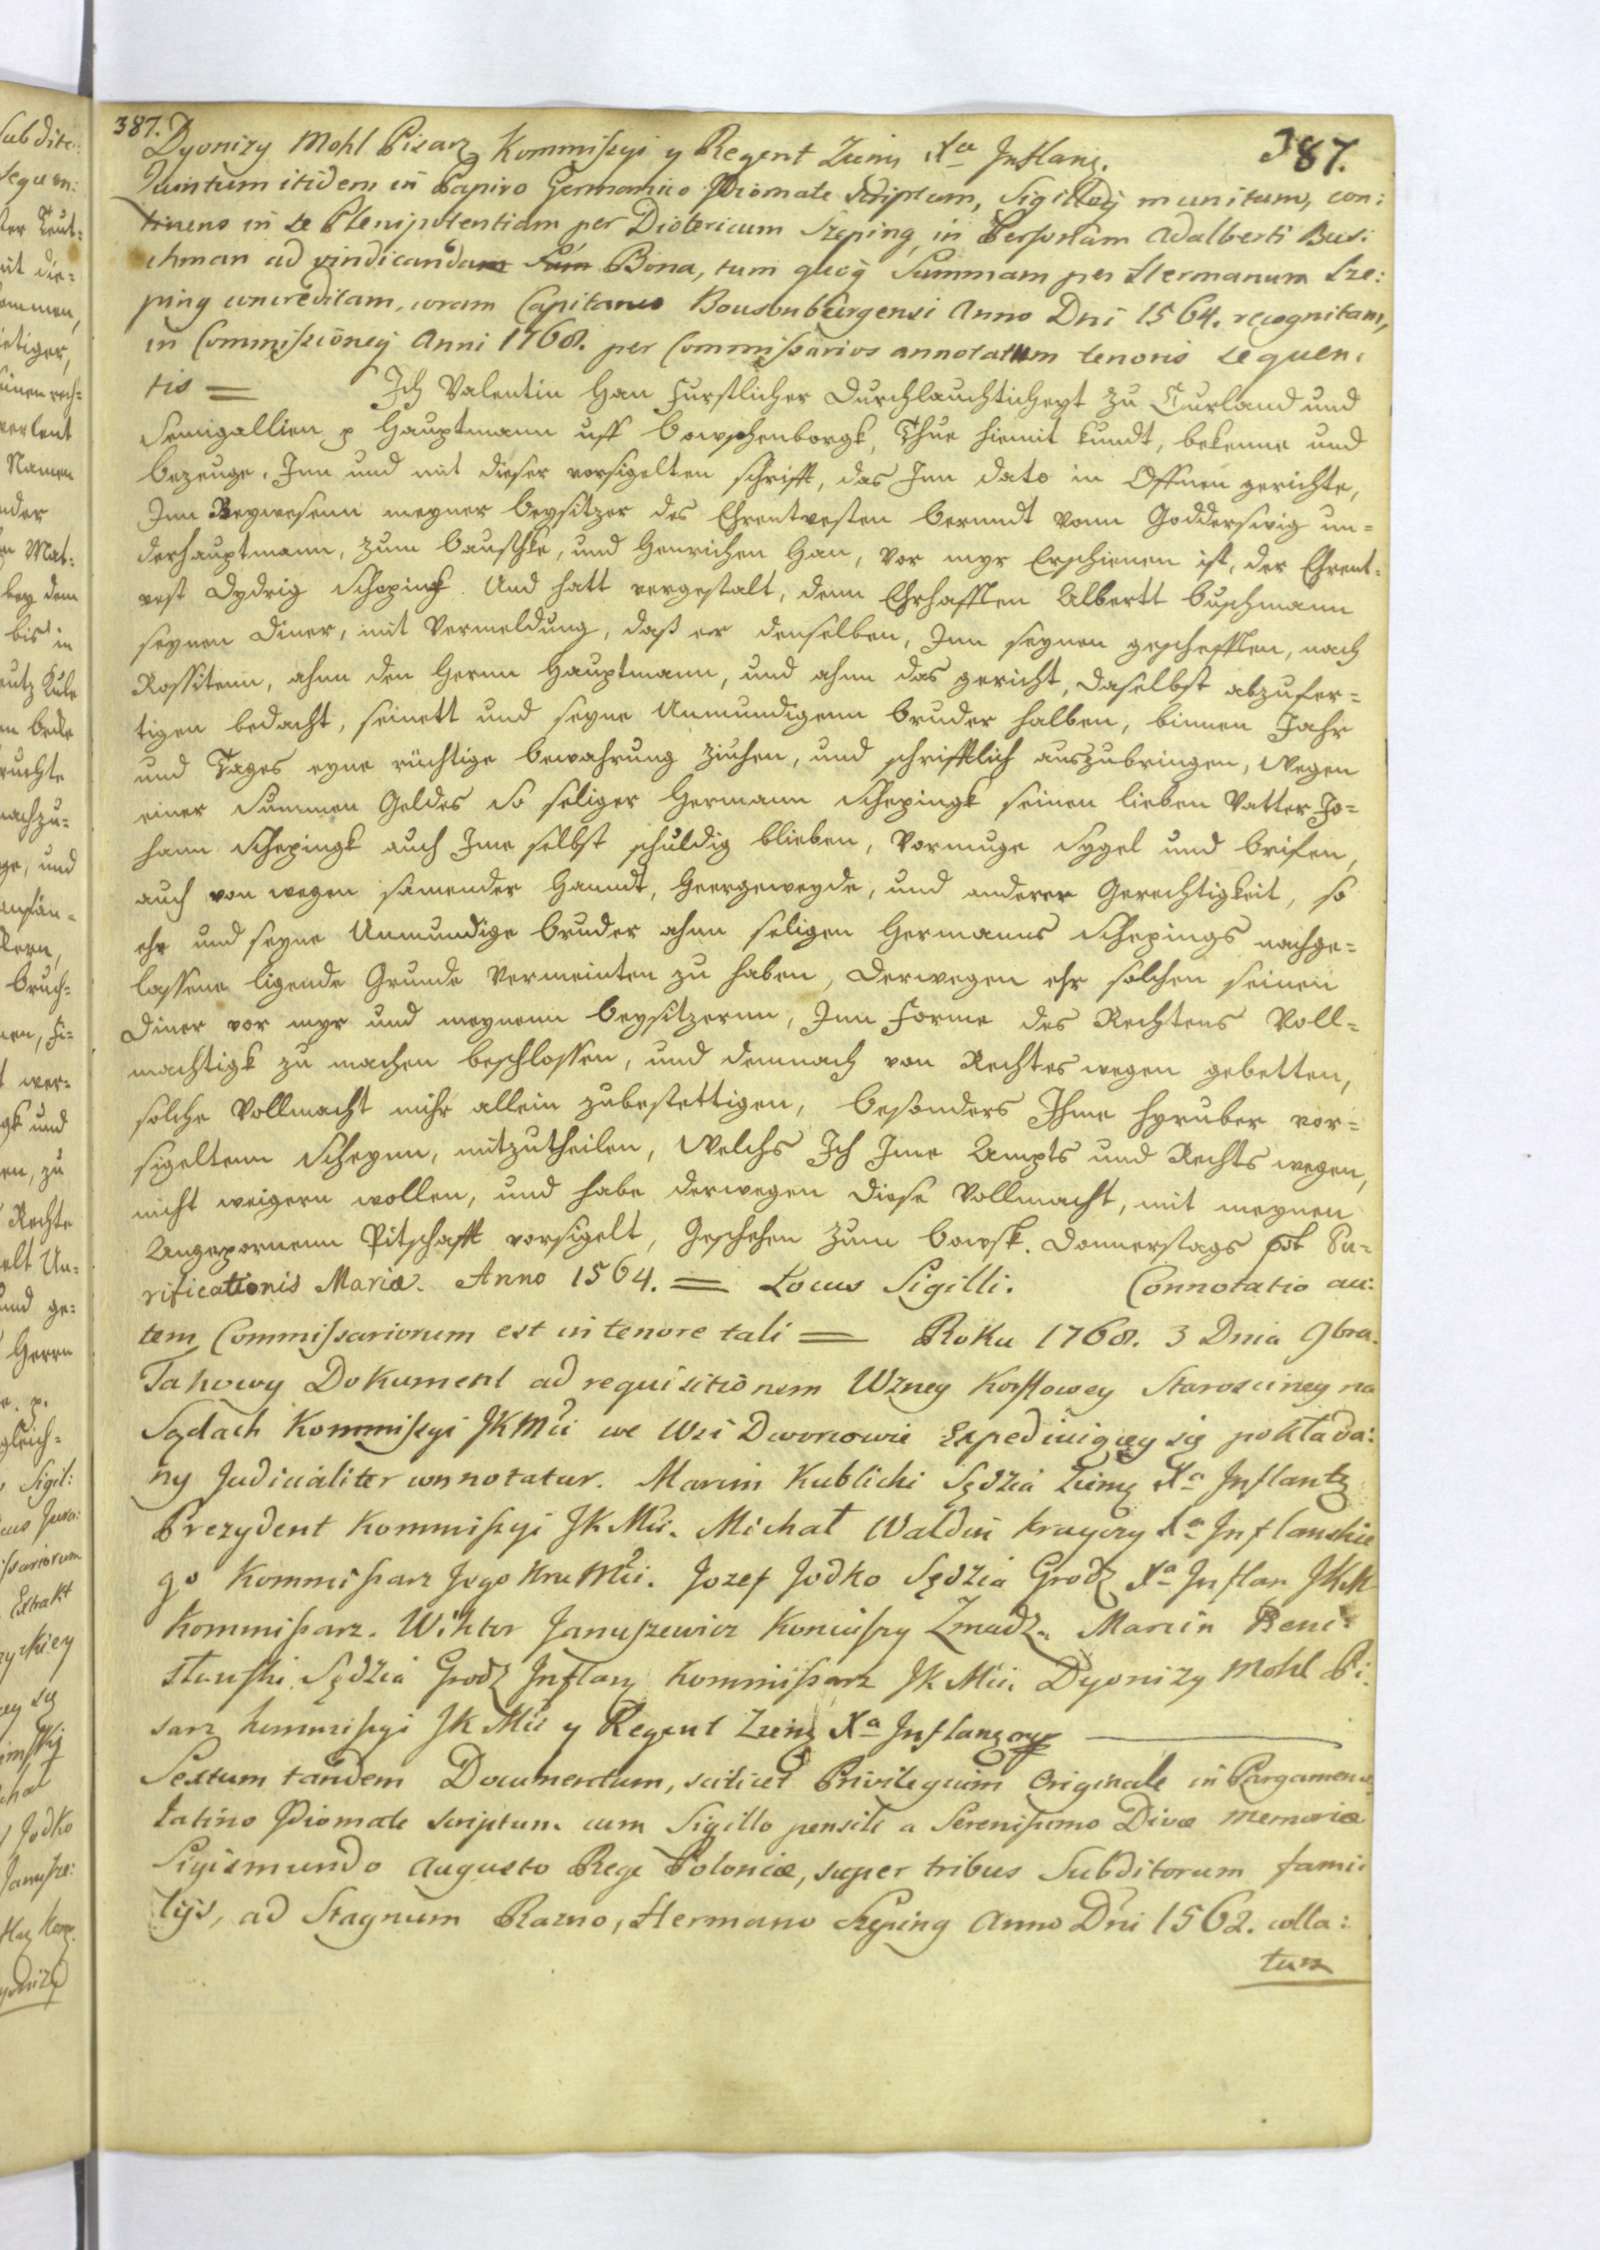 387.
387.
Dyonizy Mohl Pisarz Kommissyi y Regent Ziem: Xa Inflanz.
Quintum itidem in Papiro Germanico Idiomate Scriptum, Sigilloq munitum, con:
tinens in se Plenipotentiam per Diotericum Szeping in Personam Adalberti Bus:
chman ad vindicandam Suum Bona, tum quoq Summam per Hermanum Sze:
ping concreditam, coram Capitaneo Bousonburgensi Anno Dni 1564. recognitam,
in Commissioney Anni 1768. per Commissarios annotatum tenoris sequen:
tis = Ich Valentin Han Furstlicher Durchlauchticheyt zu Curland und
Semigallien p Hauptmann uff bowschenborgk, Thue hiemit kundt, bekenne und
bezeuge, Inn und mit dieser vorsigelten schrifft, das Inn dato in Offnen gerichte,
Inn Beywesenn meyner beysitzer des Ehrentvesten berendt vonn Goddersivig un=
derhauptmann, zum bauschke, und Henrichen Han, vor myr Erschienen ist, der Ehrent=
vest Dydrig Schoping. Und hatt vorgestalt, denn Ehrhafften Albertt buschmann
seynen Diner, mit Vermeldung, daß er denselben, Inn seynen geschefften, nach
Rossitenn, ahnn den Hernn Hauptmann, und ahnn das gericht, daselbst abzufer=
tigen bedacht, seinett und seyne Unmundigenn bruder halben, binnen Jahr
und Tages eyne richtige bewahrung ziehen, und schrifftlich auszubringen, Wegen
einer Summen Geldes So seliger Hermann Schepingk seinen lieben Vatter Jo=
hann Schepingk auch Ime selbst schuldig blieben, Vormuge Sygel und brifen,
auch von wegen samender Hanndt, Heergeweyde, und anderer Gerechtigkeit, so
ehr und seyne Unmundige bruder ahnn seligen Hermanns Schepings nachge=
lassene ligende Grunde Vermeinten zu haben, Derwegen ehr solchen seinen
Diner vor myr und meynenn beysitzernn, Inn Forme des Rechtens Voll=
machtigk zu machen beschlossen, und demnach von Rechtes wegen gebetten,
solche Vollmacht nihr allein zubestettigen, besonders Ihme hyruber vor=
sigeltenn Scheynn, mitzutheilen, Welchs Ich Ime Ampts und Rechts wegen,
nicht weigern wollen, und habe derwegen diese Vollmacht, mit meynen
Angepornenn Pitschafft vorsigelt, Geschehen zum bowsk. Donnerstags post Pu=
rificationis Mariæ. Anno 1564. = Locus Sigilli. Connotatio au:
tem Commissariorum est in tenore tali = Roku 1768. 3 Dnia 9bra.
Takowy Dokument ad requisitionem Wżney Korffowey Starosciney na
Sądach Kommissyi JKMci we Wsi Dworcowie Expediuiącey się pokłada:
ny Judicialiter connotatur. Marcin Kublicki Sędzia Ziems Xa Inflantz
Prezydent Kommissyi JKMci. Michał Waldin Krayczy Xa Inflanskie
go Kommissarz Jego Kru Mci. Jozef Jodko Sędzia Grodz Xa Inflan JKM
Kommissarz. Wiktor Januszewicz Koniuszy Zmudz. Marcin Beni:
sławski Sędzia Grodz Inflanz Kommissarz JKMci. Dyonizy Mohl Pi:
sarz kommissyi JKMci y Regent Ziems Xa Inflanz
Sextum tandem Documentum, scilicet Privilegium Originale in Pargameno
Latino Idiomate scriptum cum Sigillo pensili a Serenissimo Divæ memoriæ
Sigismundo Augusto Rege Poloniæ, super tribus Subditorum fami:
lijs, ad Stagnum Razno, Hermano Szeping Anno Dni 1562. colla:
tum